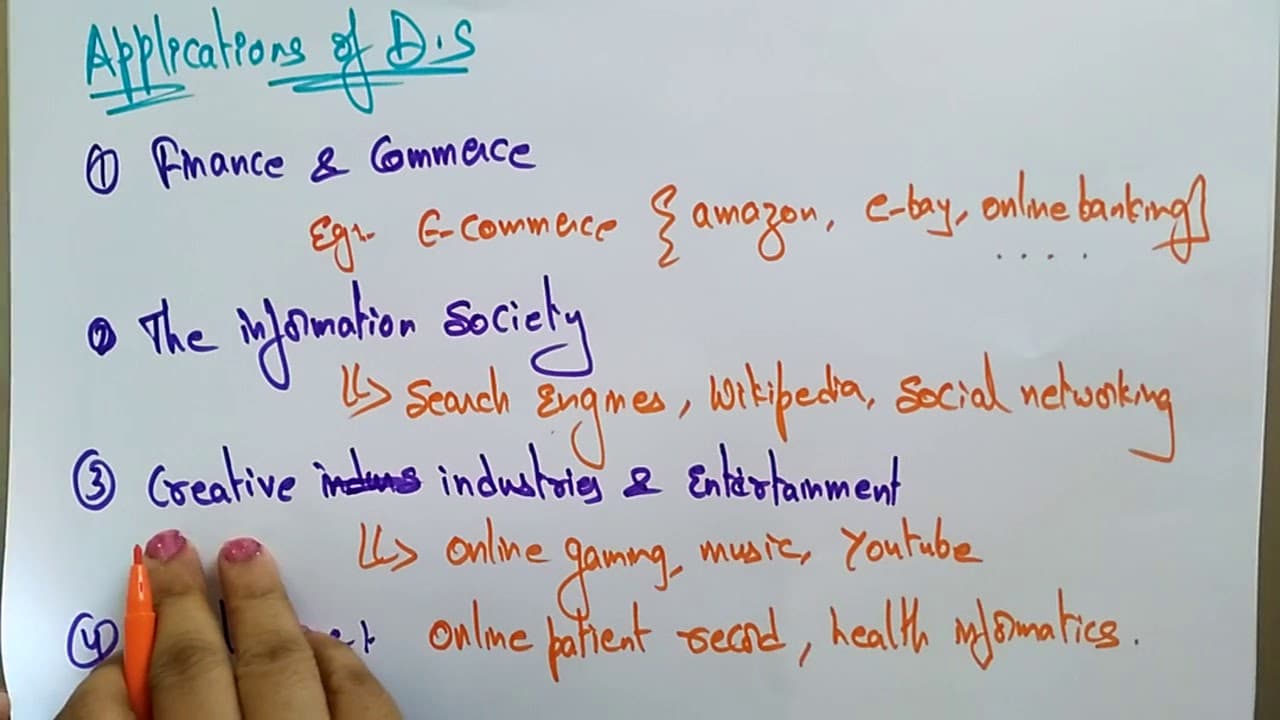 Applications of D.S
① Finance & Commerce
Eg:- E-commerce { amazon, e-bay, online banking }
....
② The information Society
↳> Search Engines, Wikipedia, Social networking
③ Creative industries & Entertainment
↳> online gaming, music, Youtube
④ online patient record, health informatics.